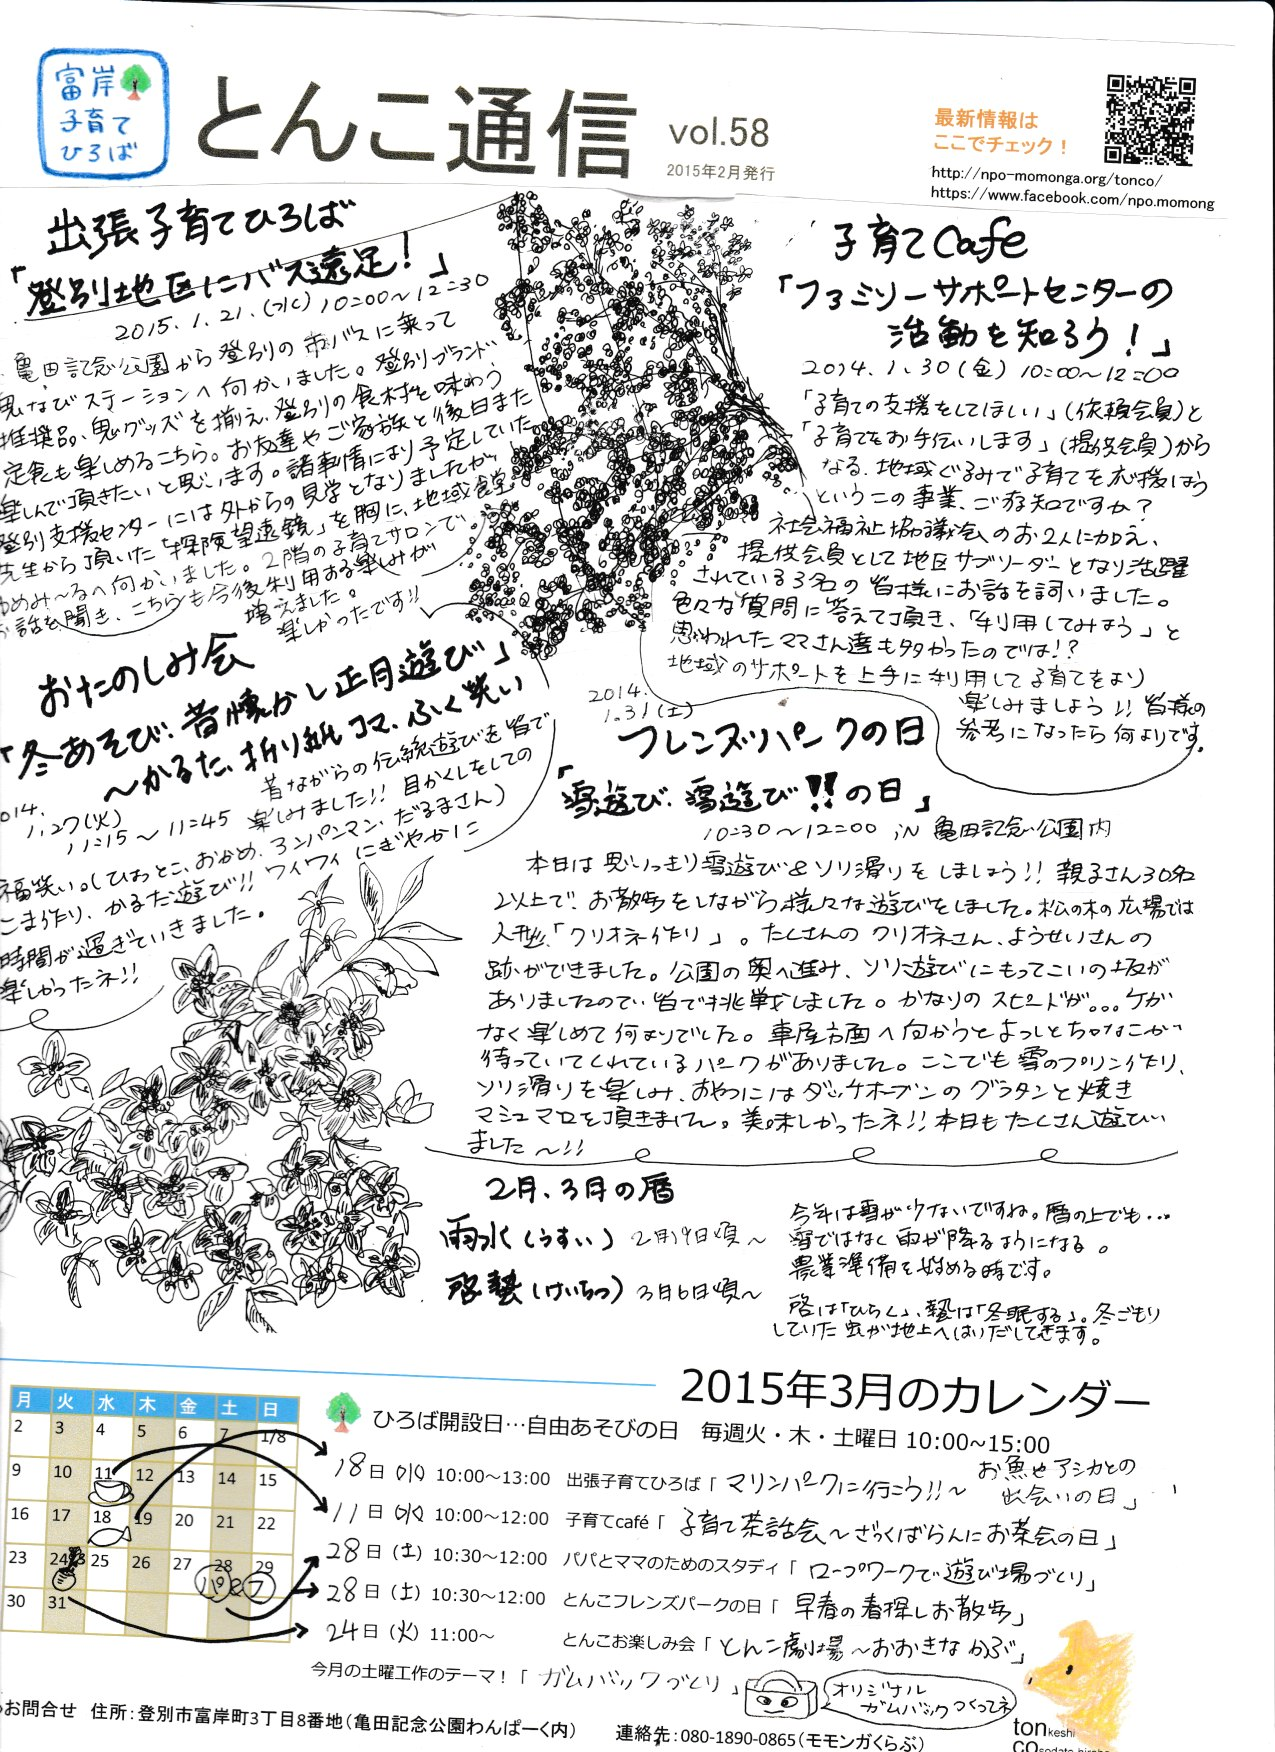 富岸
子育て
ひろば
とんこ通信 vol.58
2015年2月発行
最新情報は
ここでチェック！
http://npo-momonga.org/tonco/
https://www.facebook.com/npo.momong
出張子育てひろば
「登別地区にバス遠足！」
2015.1.21.(水) 10:00～12:30
亀田記念公園から登別の市バスに乗って
鬼なびステーションへ向かいました。登別ブランド
推奨品、鬼グッズを揃え、登別の食材を味わう
定食も楽しめるこちら。お友達やご家族と後日また
楽しんで頂きたいと思います。諸事情により予定していた
登別支援センターには外からの見学となりましたが
先生から頂いた「探険望遠鏡」を胸に、地域食堂
ゆめみ～るへ向かいました。2階の子育てサロンで
お話を聞き、こちらも今後利用する楽しみが
増えました。
楽しかったです!!
子育てCafe
「ファミリーサポートセンターの
活動を知ろう！」
2014.1.30(金) 10:00～12:00
「子育ての支援をしてほしい」(依頼会員)と
「子育てをお手伝いします」(提供会員)から
なる、地域ぐるみで子育てを応援しよう
というこの事業、ご存知ですか？
社会福祉協議会のお2人に加え、
提供会員として地区サブリーダーとなり活躍
されている3名の皆様にお話を伺いました。
色々な質問に答えて頂き、「利用してみよう」と
思われたママさん達も多かったのでは!?
地域のサポートを上手に利用して子育てをより
楽しみましょう!! 皆様の
参考になったら何よりです。
おたのしみ会
「冬あそび、昔懐かし正月遊び」
～かるた、折り紙コマ、ふく笑い
014.
1.27(火)
11:15～11:45
昔ながらの伝統遊びを皆で
楽しみました!! 目かくしをしての
福笑い。(ひょっとこ、おかめ、アンパンマン、だるまさん)
こま作り、かるた遊び!! ワイワイにぎやかに
時間が過ぎていきました。
楽しかったネ!!
2014.
1.31(土)
フレンズパークの日
「雪遊び、雪遊び!!の日」
10:30～12:00 iN 亀田記念公園内
本日は思いっきり雪遊び&ソリ滑りをしましょう!! 親子さん30名
以上で、お散歩をしながら様々な遊びをしました。松の木の広場では
人型「クリオネ作り」。たくさんのクリオネさん、ようせいさんの
跡ができました。公園の奥へ進み、ソリ遊びにもってこいの坂が
ありましたので、皆で挑戦しました。かなりのスピードが...ケガ
なく楽しめて何よりでした。車屋方面へ向かうとよっしとちゃなこが
待っていてくれているパークがありました。ここでも雪のプリン作り、
ソリ滑りを楽しみ、おやつにはダッチオーブンのグラタンと焼き
マシュマロを頂きました。美味しかったネ!! 本日もたくさん遊び
ました～!!
2月、3月の暦
雨水(うすい) 2月19日頃～
今年は雪が少ないですね。暦の上でも...
雪ではなく雨が降るようになる。
農業準備を始める時です。
啓蟄(けいちつ) 3月6日頃～
啓は「ひらく」、蟄は「冬眠する」。冬ごもり
していた虫が地上へはいだしてきます。
2015年3月のカレンダー
月 火 水 木 金 土 日
2 3 4 5 6 7 1/8
9 10 11 12 13 14 15
16 17 18 19 20 21 22
23 24 25 26 27 28 29
30 31
ひろば開設日…自由あそびの日 毎週火・木・土曜日 10:00~15:00
18日(水) 10:00～13:00 出張子育てひろば「マリンパークに行こう!!～お魚やアシカとの
出会いの日」
11日(水) 10:00～12:00 子育てcafé「子育て茶話会～ざっくばらんにお茶会の日」
28日(土) 10:30～12:00 パパとママのためのスタディ「ロープワークで遊び場づくり」
28日(土) 10:30～12:00 とんこフレンズパークの日「早春の春探しお散歩」
24日(火) 11:00～ とんこお楽しみ会「とんこ劇場～おおきなかぶ」
今月の土曜工作のテーマ！「ガムバックづくり」
オリジナル
ガムバックつくってネ
お問合せ 住所：登別市富岸町3丁目8番地(亀田記念公園わんぱーく内) 連絡先：080-1890-0865(モモンガくらぶ)
tonkeshi